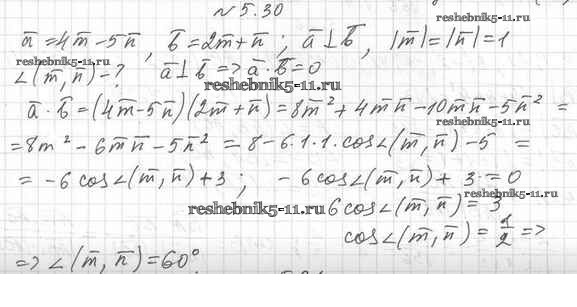 № 5.30
reshebnik5-11.ru
a̅ = 4m̅ - 5n̅, b̅ = 2m̅ + n̅; a̅ ⊥ b̅, |m̅| = |n̅| = 1
reshebnik5-11.ru
∠(m̅, n̅) - ? a̅ ⊥ b̅ => a̅ · b̅ = 0
reshebnik5-11.ru
a̅ · b̅ = (4m̅ - 5n̅)(2m̅ + n̅) = 8m̅² + 4m̅n̅ - 10m̅n̅ - 5n̅² =
= 8m² - 6m̅n̅ - 5n̅² = 8 - 6·1·1·cos∠(m̅, n̅) - 5 =
= -6cos∠(m̅, n̅) + 3; -6cos∠(m̅, n̅) + 3 = 0
reshebnik5-11.ru
reshebnik5-11.ru
6cos∠(m̅, n̅) = 3
cos∠(m̅, n̅) = 1/2 =>
=> ∠(m̅, n̅) = 60°